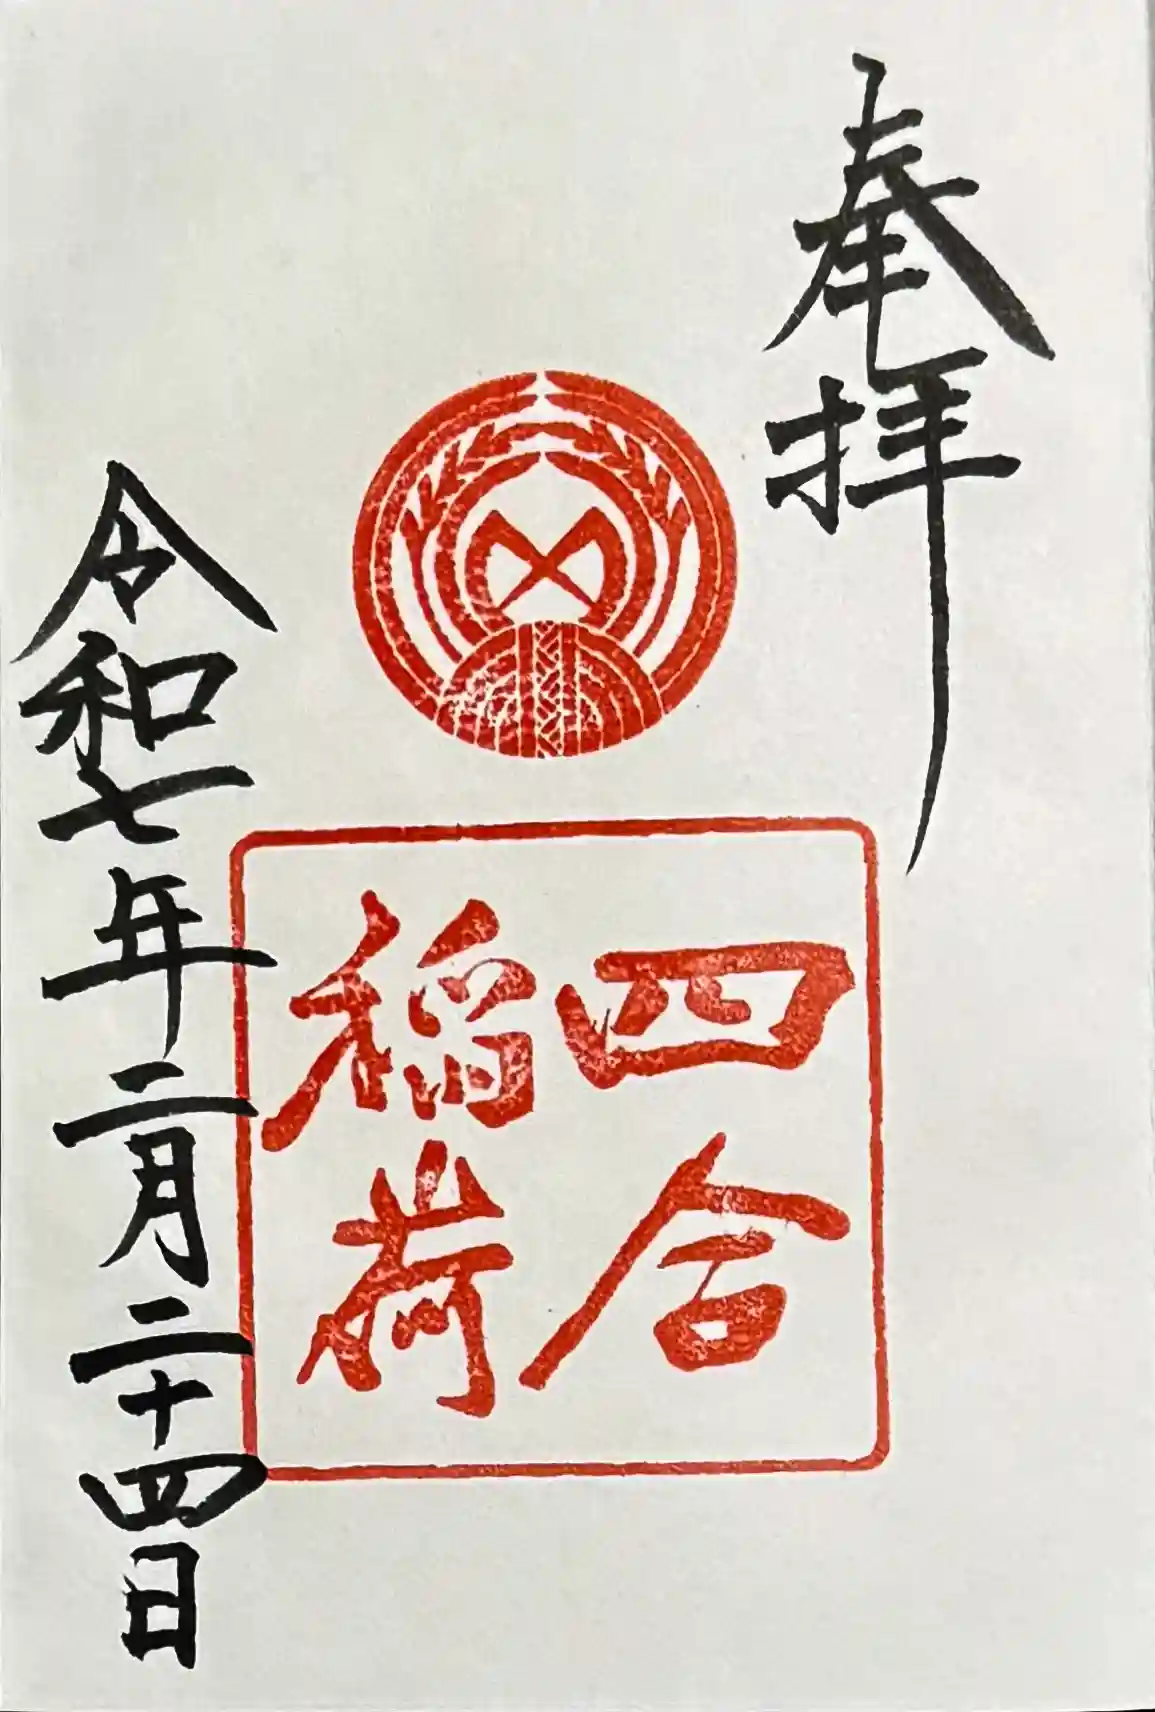 奉拝
四合
稲荷
令和七年二月二十四日